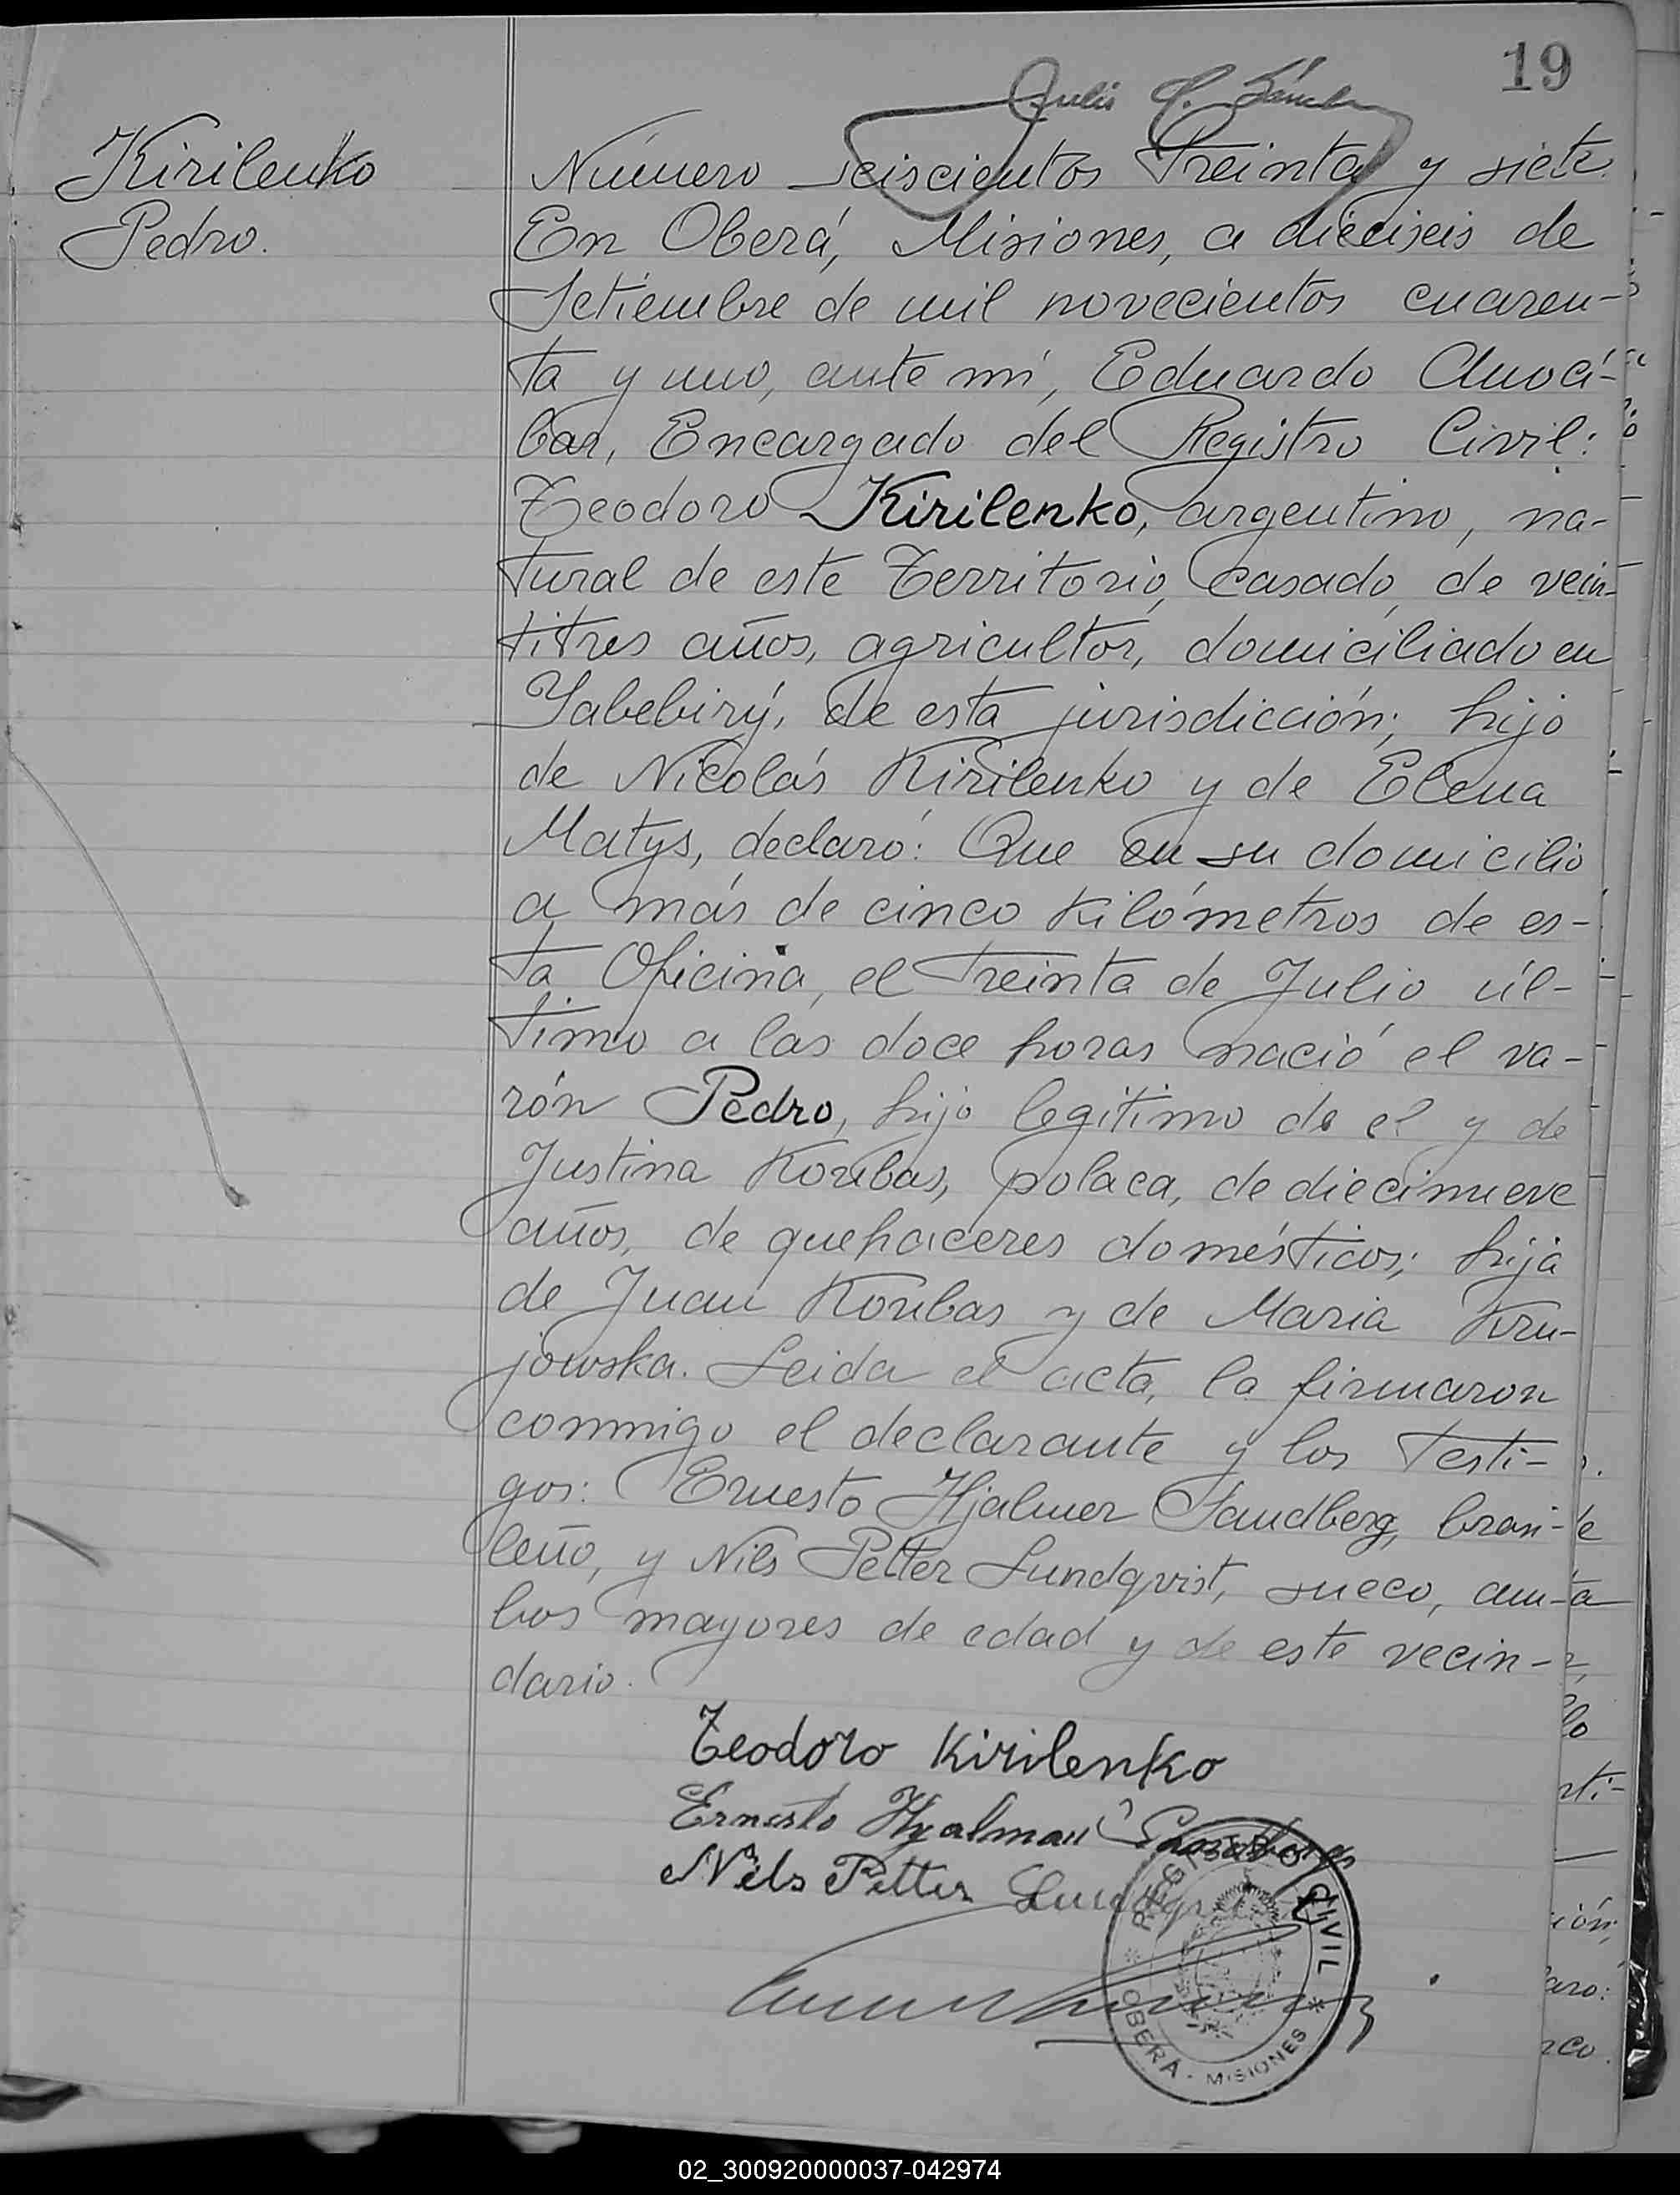 19
Julio
Kirilenko
Pedro.
Número seiscientos treinta y siete.
En Oberá, Misiones, a dieciseis de
Setiembre de mil novecientos cuaren-
ta y uno, ante mí, Eduardo Amocí-
bar, Encargado del Registro Civil:
Teodoro Kirilenko, argentino, na-
tural de este Territorio, casado, de vein-
titres años, agricultor, domiciliado en
Yabebiry, de esta jurisdicción; hijo
de Nicolás Kirilenko y de Elena
Matys, declaró: Que en su domicilio
a más de cinco kilómetros de es-
ta Oficina, el treinta de Julio úl-
timo a las doce horas nació el va-
rón Pedro, hijo legítimo de el y de
Justina Korubas, polaca, de diecinueve
años, de quehaceres domésticos; hija
de Juan Korubas y de Maria Kru-
jowska. Leida el acta, la firmaron
conmigo el declarante y los testi-
gos: Ernesto Hjalmer Sandberg, brasi-
leño, y Nils Petter Lundqvist, sueco, am-
bos mayores de edad y de este vecin-
dario.
Teodoro Kirilenko
Ernesto Hyalmar Sandberg
Nils Petter Lundqvist
REGISTRO CIVIL
OBERÁ - MISIONES
02_300920000037-042974